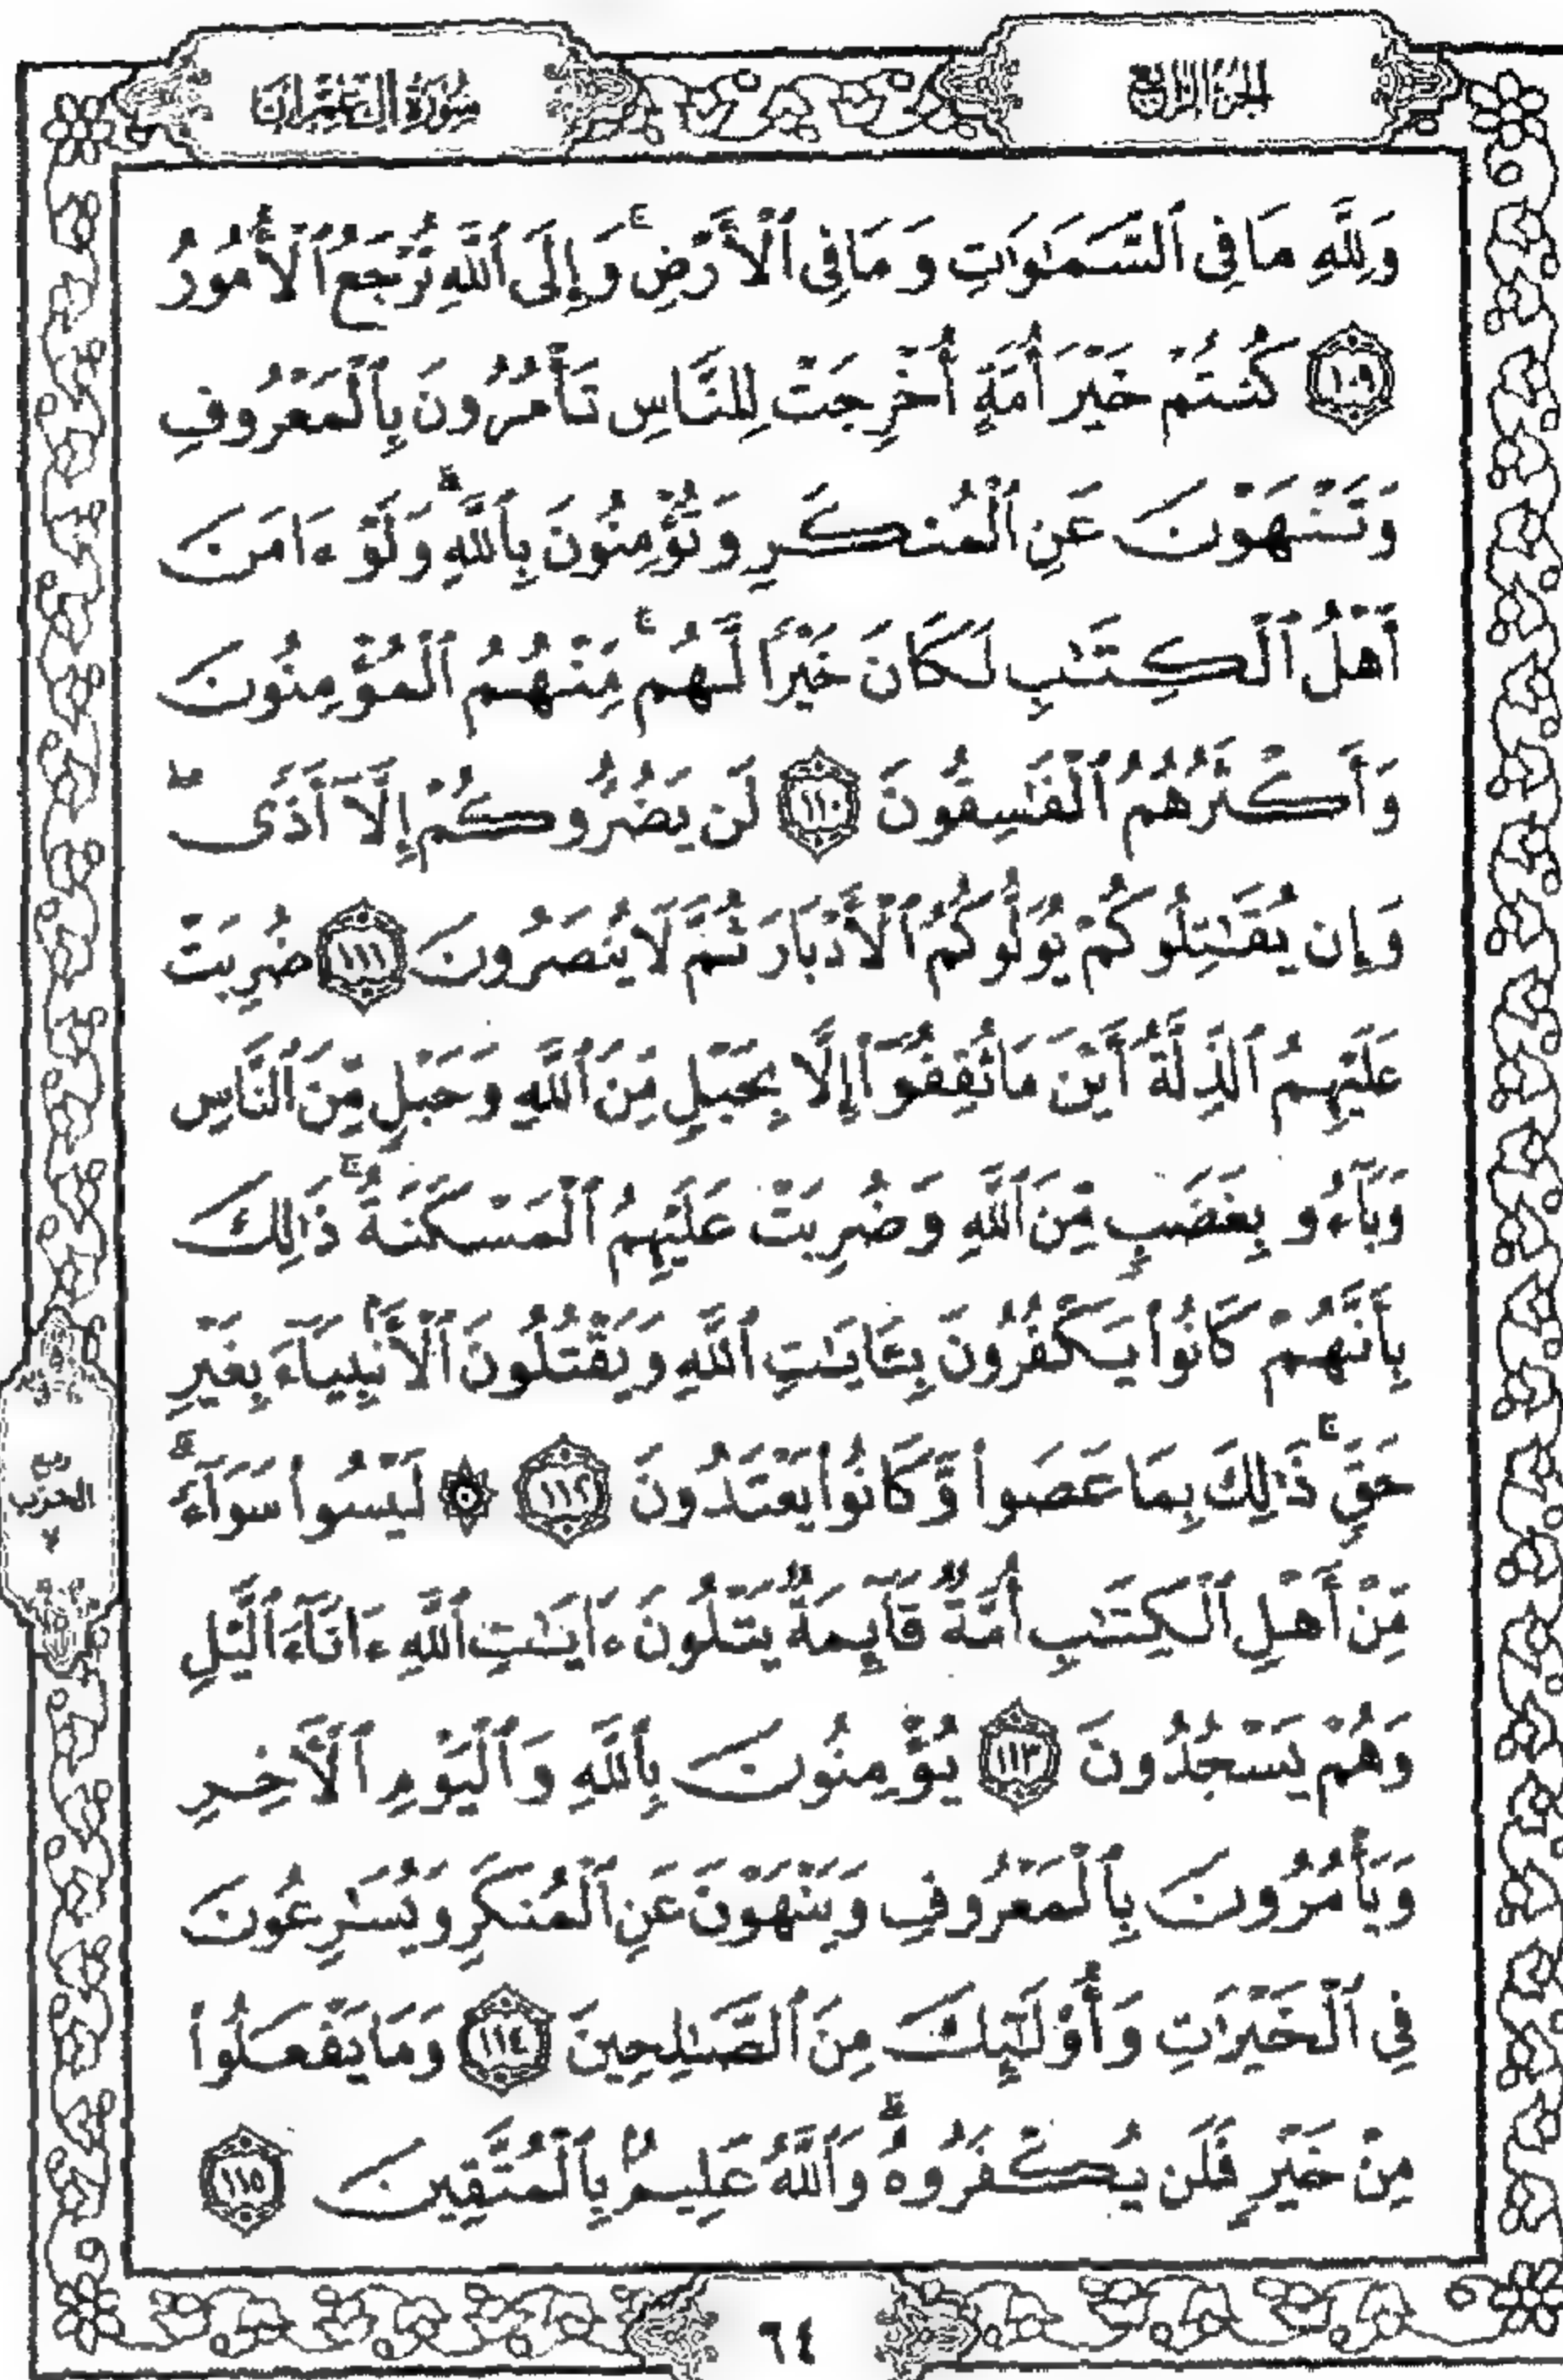 الجزء الرابع
سورة آل عمران
وَلِلَّهِ مَا فِى ٱلسَّمَٰوَٰتِ وَمَا فِى ٱلْأَرْضِ ۚ وَإِلَى ٱللَّهِ تُرْجَعُ ٱلْأُمُورُ
﴿١٠٩﴾ كُنتُمْ خَيْرَ أُمَّةٍ أُخْرِجَتْ لِلنَّاسِ تَأْمُرُونَ بِٱلْمَعْرُوفِ
وَتَنْهَوْنَ عَنِ ٱلْمُنكَرِ وَتُؤْمِنُونَ بِٱللَّهِ ۗ وَلَوْ ءَامَنَ
أَهْلُ ٱلْكِتَٰبِ لَكَانَ خَيْرًا لَّهُم ۚ مِّنْهُمُ ٱلْمُؤْمِنُونَ
وَأَكْثَرُهُمُ ٱلْفَٰسِقُونَ ﴿١١٠﴾ لَن يَضُرُّوكُمْ إِلَّآ أَذًى ۖ
وَإِن يُقَٰتِلُوكُمْ يُوَلُّوكُمُ ٱلْأَدْبَارَ ثُمَّ لَا يُنصَرُونَ ﴿١١١﴾ ضُرِبَتْ
عَلَيْهِمُ ٱلذِّلَّةُ أَيْنَ مَا ثُقِفُوٓا۟ إِلَّا بِحَبْلٍ مِّنَ ٱللَّهِ وَحَبْلٍ مِّنَ ٱلنَّاسِ
وَبَآءُو بِغَضَبٍ مِّنَ ٱللَّهِ وَضُرِبَتْ عَلَيْهِمُ ٱلْمَسْكَنَةُ ۚ ذَٰلِكَ
بِأَنَّهُمْ كَانُوا۟ يَكْفُرُونَ بِـَٔايَٰتِ ٱللَّهِ وَيَقْتُلُونَ ٱلْأَنۢبِيَآءَ بِغَيْرِ
حَقٍّ ۚ ذَٰلِكَ بِمَا عَصَوا۟ وَّكَانُوا۟ يَعْتَدُونَ ﴿١١٢﴾ ۞ لَيْسُوا۟ سَوَآءً ۗ
مِّنْ أَهْلِ ٱلْكِتَٰبِ أُمَّةٌ قَآئِمَةٌ يَتْلُونَ ءَايَٰتِ ٱللَّهِ ءَانَآءَ ٱلَّيْلِ
وَهُمْ يَسْجُدُونَ ﴿١١٣﴾ يُؤْمِنُونَ بِٱللَّهِ وَٱلْيَوْمِ ٱلْءَاخِرِ
وَيَأْمُرُونَ بِٱلْمَعْرُوفِ وَيَنْهَوْنَ عَنِ ٱلْمُنكَرِ وَيُسَٰرِعُونَ
فِى ٱلْخَيْرَٰتِ وَأُو۟لَٰٓئِكَ مِنَ ٱلصَّٰلِحِينَ ﴿١١٤﴾ وَمَا يَفْعَلُوا۟
مِنْ خَيْرٍ فَلَن يُكْفَرُوهُ ۗ وَٱللَّهُ عَلِيمٌۢ بِٱلْمُتَّقِينَ ﴿١١٥﴾
ربع
الحزب
٧
٦٤